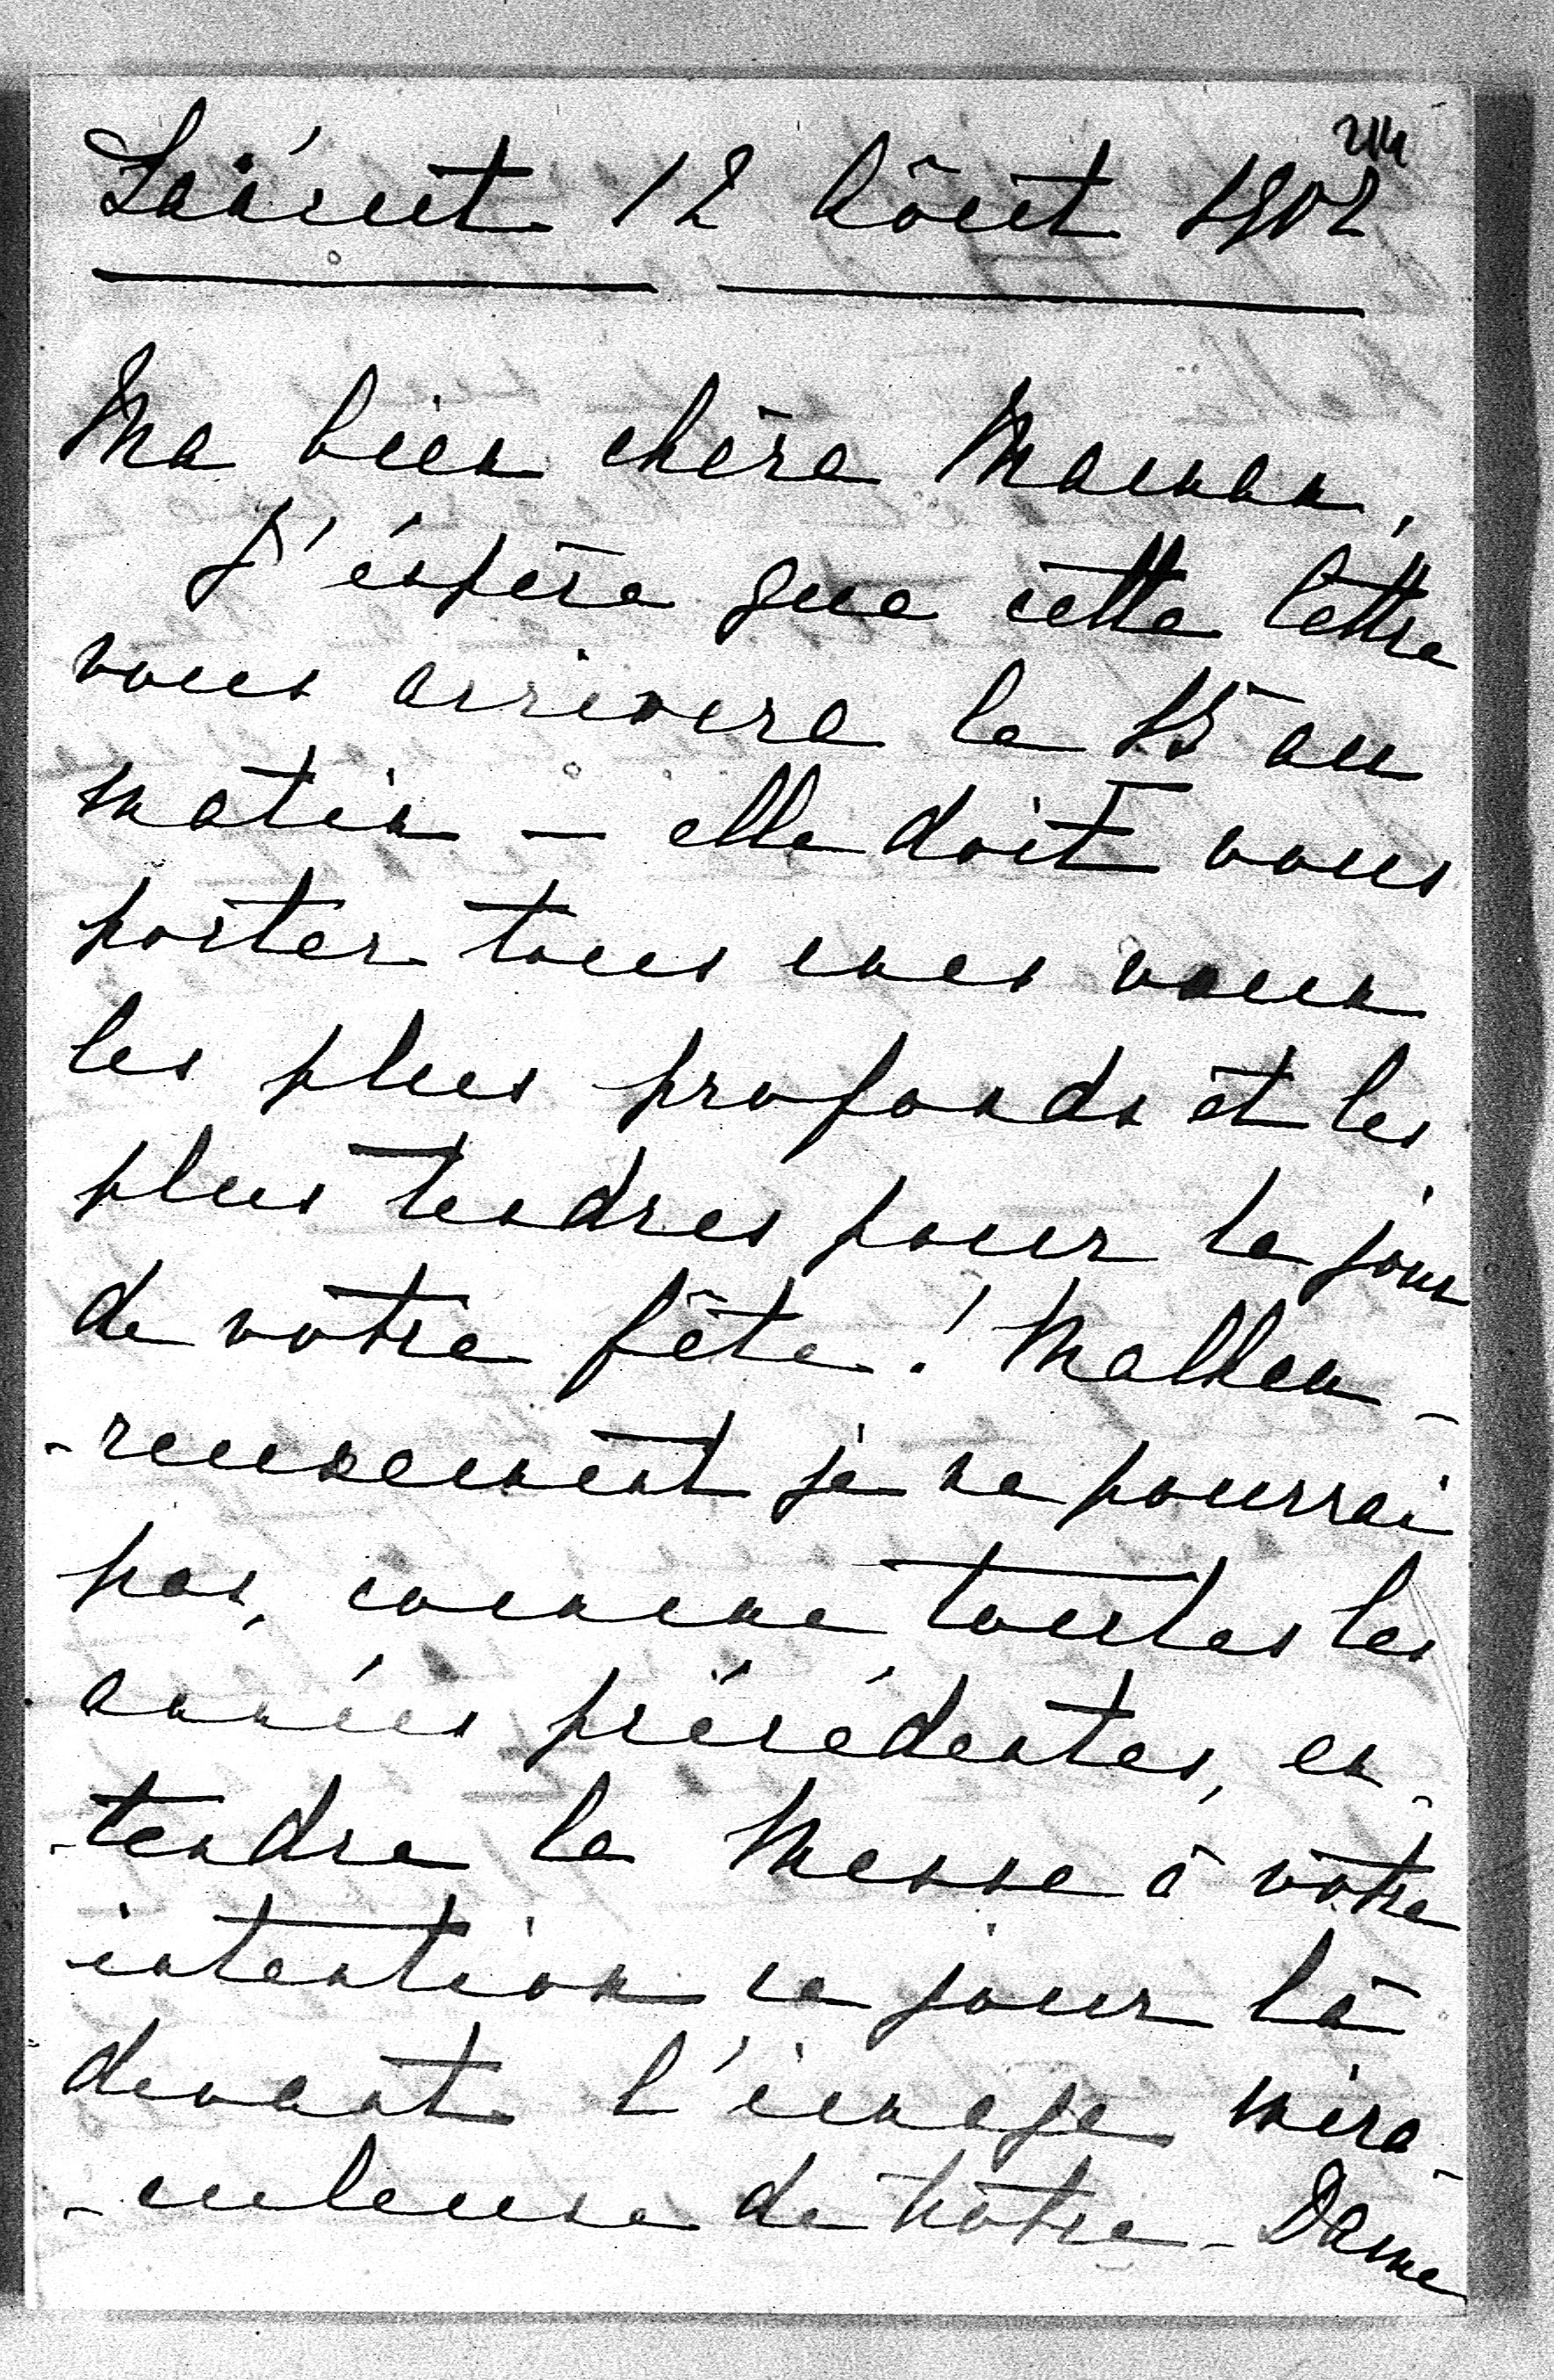 214
Laäruet 12 Août 1902
Ma bien chère Maman,
J'éspère que cette lettre
vous arrivera le 15 au
matin — elle doit vous
porter tous mes voeux
les plus profonds et les
plus tendres pour le jour
de votre fête! Malheu-
-reusement je ne pourrai
pas, comme toutes les
années précédentes, en-
-tendre la Messe à votre
intention ce jour là
devant l'image mira-
-culeuse de Notre-Dame